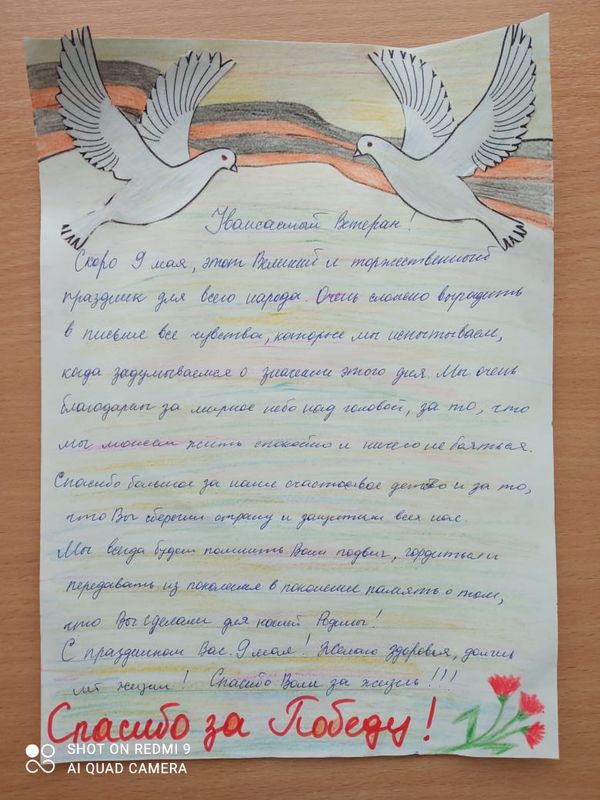 Уважаемый Ветеран!
Скоро 9 мая, этот Великий и торжественный
праздник для всего народа. Очень сложно выразить
в письме все чувства, которые мы испытываем,
когда задумываемся о значении этого дня. Мы очень
благодарны за мирное небо над головой, за то, что
мы можем жить спокойно и ничего не бояться.
Спасибо большое за наше счастливое детство и за то,
что Вы сберегли страну и защитили всех нас.
Мы всегда будем помнить Ваш подвиг, гордиться и
передавать из поколения в поколение память о том,
что Вы сделали для нашей Родины!
С праздником Вас. 9 мая! Желаю здоровья, долгих
лет жизни! Спасибо Вам за жизнь!!!
Спасибо за Победу!
SHOT ON REDMI 9
AI QUAD CAMERA